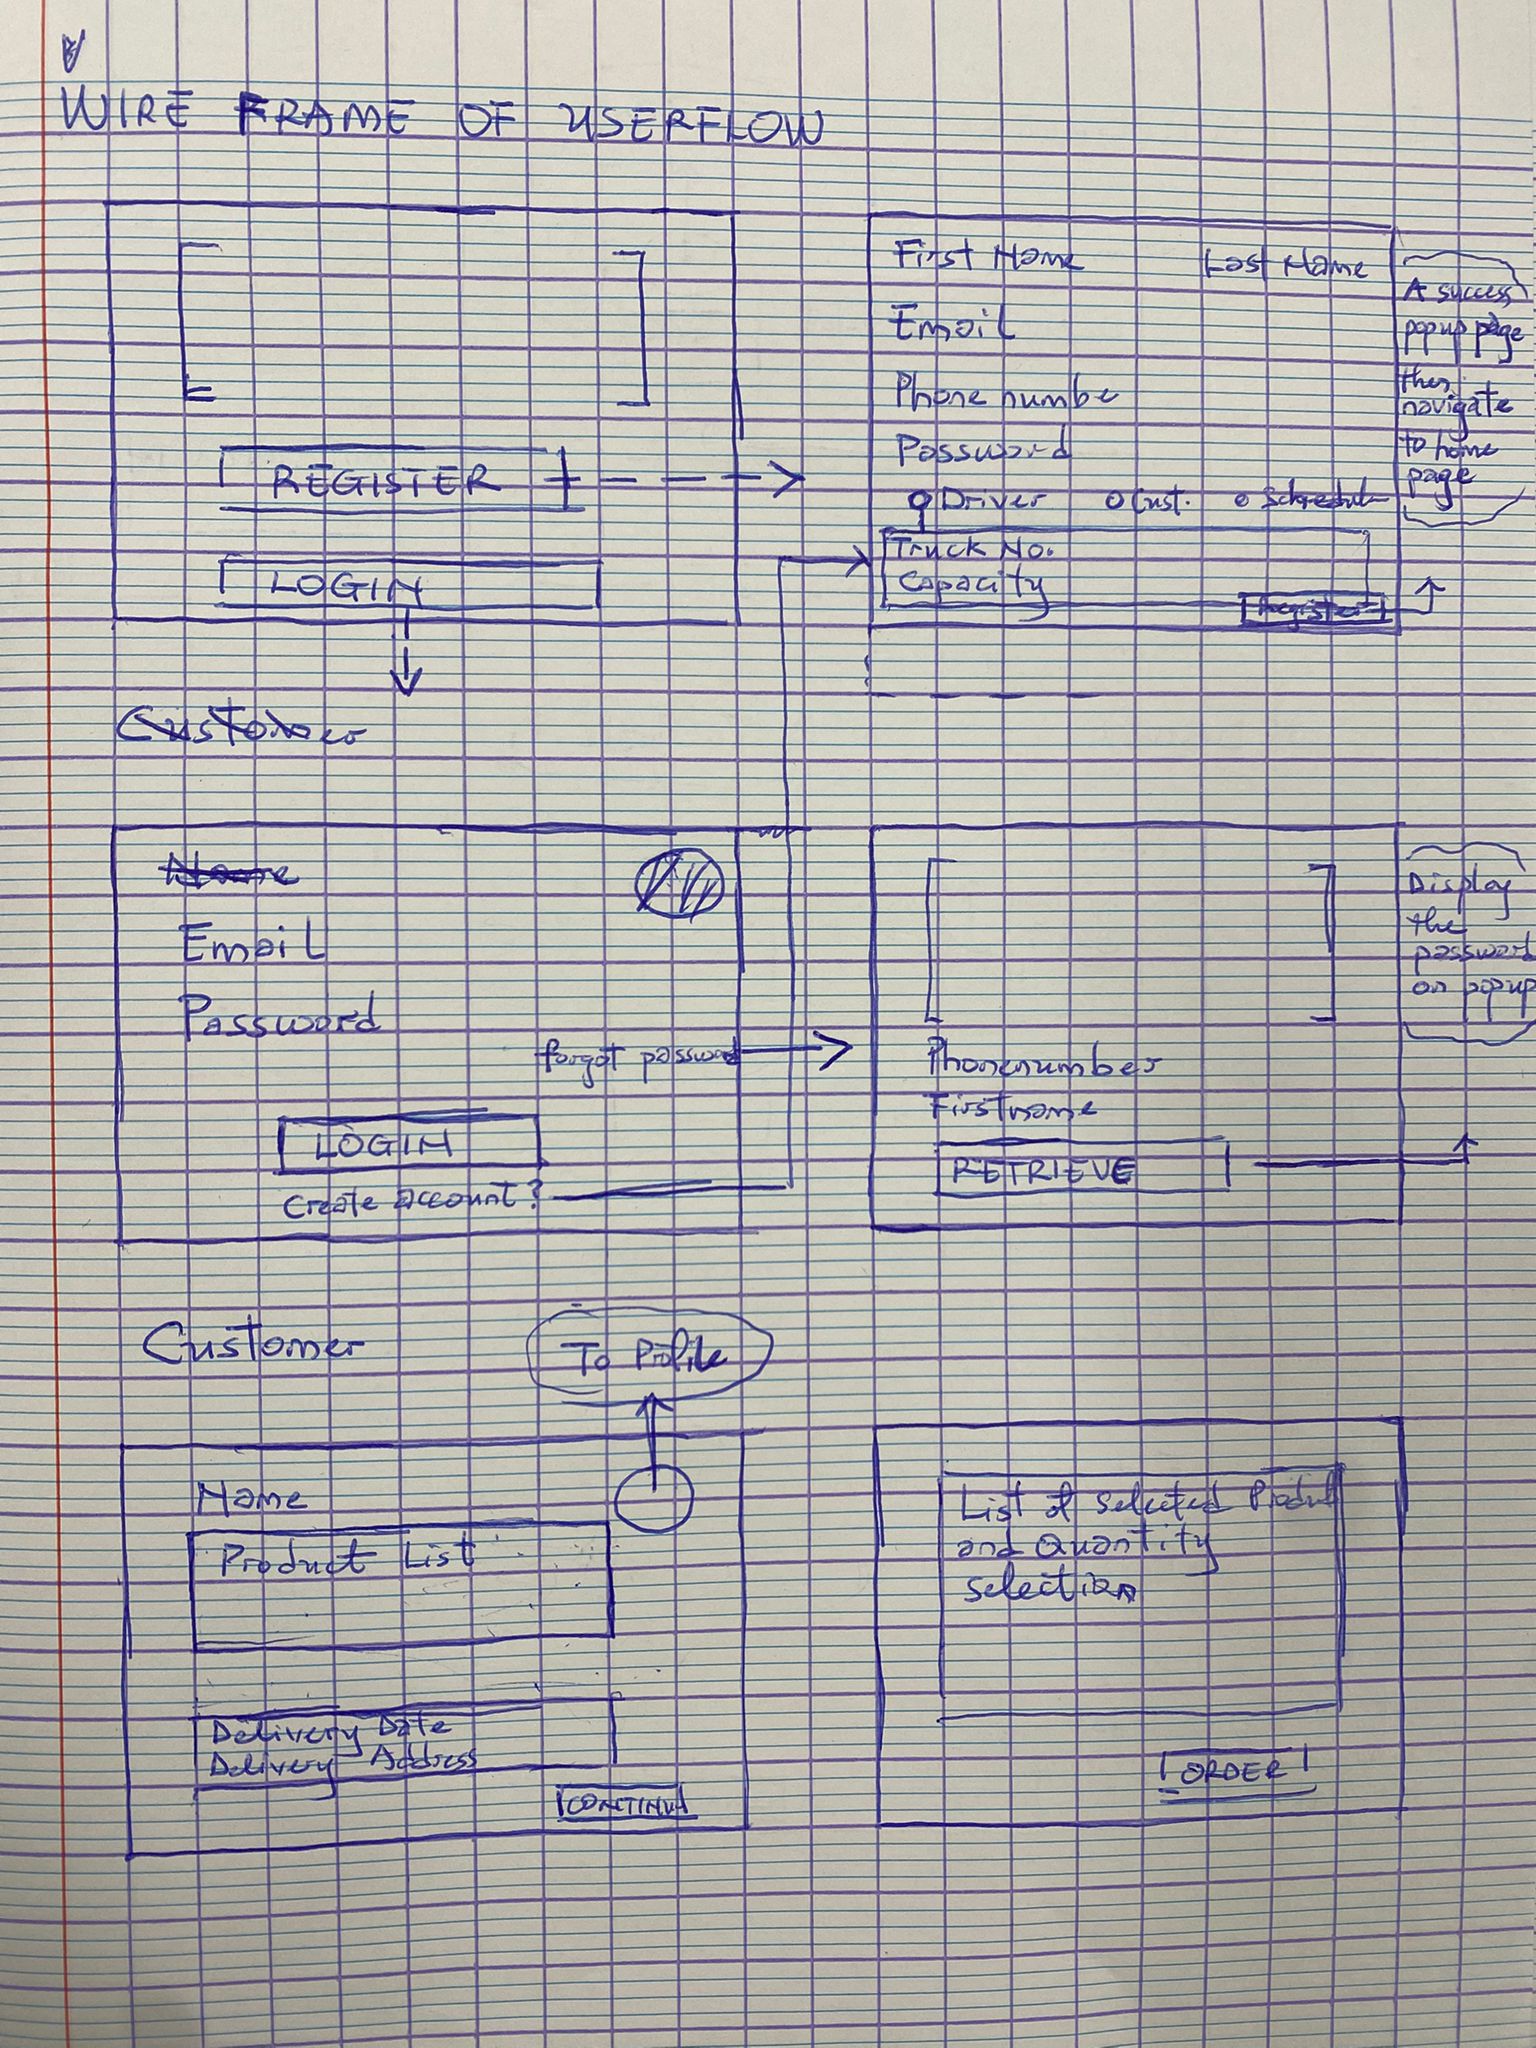 WIRE FRAME OF USERFLOW
REGISTER
LOGIN
First Name Last Name
Email
Phone numbe
Password
Driver Cust. Schedule
Truck No.
Capacity
Register
A success
popup page
then
navigate
to home
page
Customer
Name
Email
Password
forgot password
LOGIN
Create account?
Phonenumber
Firstname
RETRIEVE
Display
the
password
on popup
Customer
To Profile
Name
Product List
Delivery Date
Delivery Address
CONTINU
List of Selected Product
and Quantity
Selection
ORDER